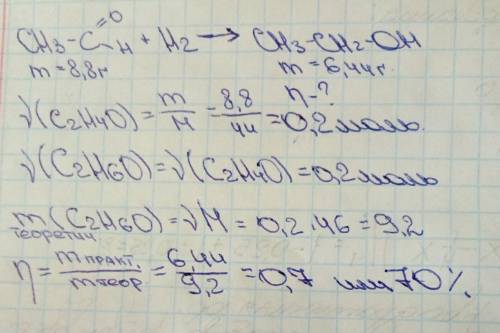 CH3-C=O H + H2 → CH3-CH2-OH
m = 8,8г m = 6,44г.
η-?
ν(C2H4O) = m/M = 8,8/44 = 0,2 моль.
ν(C2H6O) = ν(C2H4O) = 0,2 моль
m(C2H6O) = νM = 0,2·46 = 9,2
теоретич
η = mпракт./mтеор = 6,44/9,2 = 0,7 или 70%.